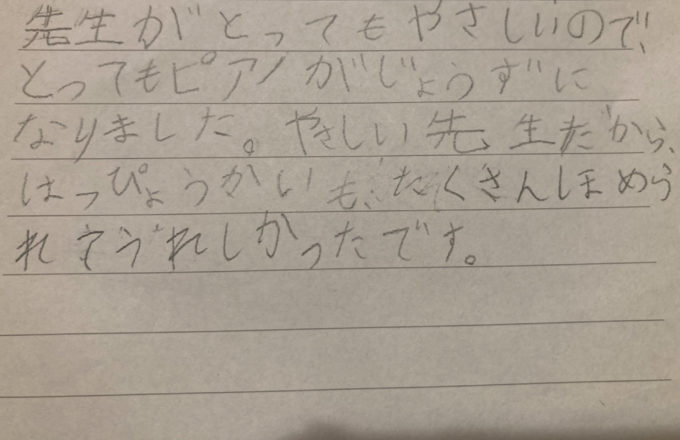 先生がとってもやさしいので、
とってもピアノがじょうずに
なりました。やさしい先生だから、
はっぴょうかいも、たくさんほめら
れてうれしかったです。